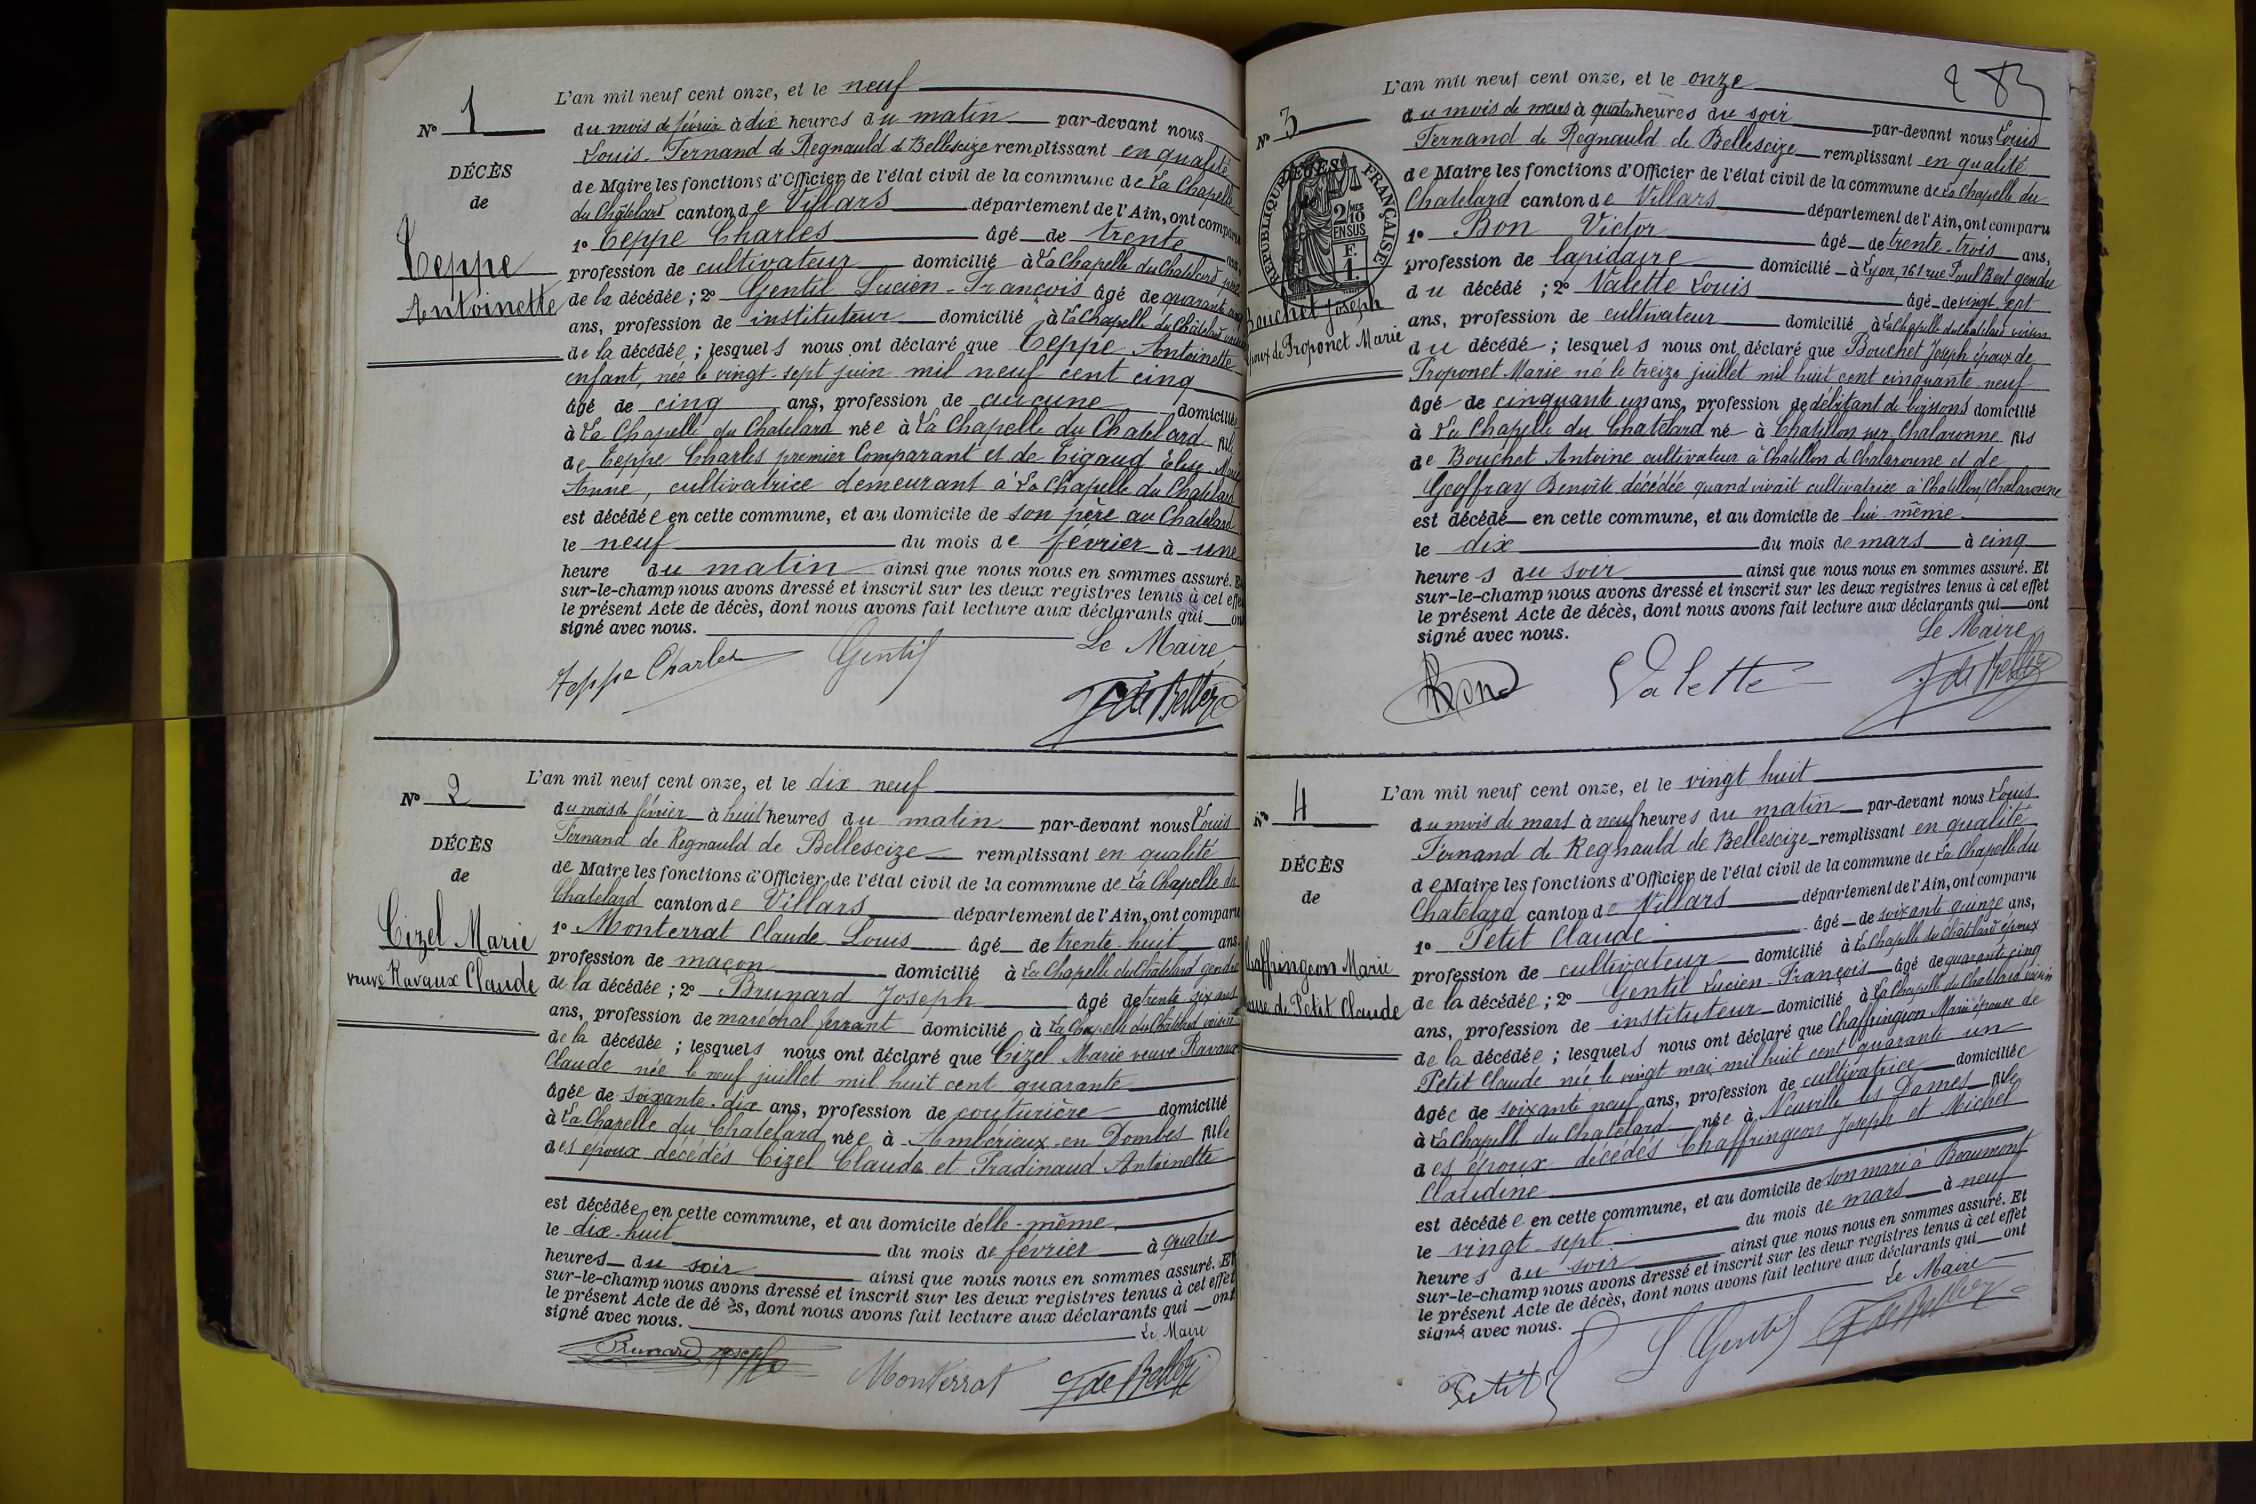 N° 1
DÉCÈS
de
Teppe
Antoinette
L'an mil neuf cent onze, et le neuf
du mois de février à dix heures du matin par-devant nous
Louis Fernand de Regnauld de Bellescize remplissant en qualité
de Maire les fonctions d'Officier de l'état civil de la commune de La Chapelle
du Châtelard canton de Villars département de l'Ain, ont comparu
1° Teppe Charles âgé de trente ans,
profession de cultivateur domicilié à La Chapelle du Chatelard père
de la décédée ; 2° Gentil Lucien-François âgé de quarante cinq
ans, profession de instituteur domicilié à La Chapelle du Châtelard voisin
de la décédée ; lesquels nous ont déclaré que Teppe Antoinette
enfant, née le vingt-sept juin mil neuf cent cinq
âgé de cinq ans, profession de aucune domiciliée
à La Chapelle du Chatelard née à La Chapelle du Chatelard fille
de Teppe Charles premier Comparant et de Tigaud Elise Marie
Anne, cultivatrice demeurant à La Chapelle du Chatelard
est décédée en cette commune, et au domicile de son père au Chatelard
le neuf du mois de février à une
heure du matin ainsi que nous nous en sommes assuré. Et
sur-le-champ nous avons dressé et inscrit sur les deux registres tenus à cet effet
le présent Acte de décès, dont nous avons fait lecture aux déclarants qui ont
signé avec nous.
Le Maire
Teppe Charles Gentil
F de Bellesc
N° 2
DÉCÈS
de
Cizel Marie
veuve Ravaux Claude
L'an mil neuf cent onze, et le dix neuf
du mois de février à huit heures du matin par-devant nous Louis
Fernand de Regnauld de Bellescize remplissant en qualité
de Maire les fonctions d'Officier de l'état civil de la commune de La Chapelle du
Chatelard canton de Villars département de l'Ain, ont comparu
1° Monterrat Claude Louis âgé de trente-huit ans,
profession de maçon domicilié à La Chapelle du Châtelard gendre
de la décédée ; 2° Brunard Joseph âgé de trente six ans
ans, profession de maréchal ferrant domicilié à La Chapelle du Châtelard voisin
de la décédée ; lesquels nous ont déclaré que Cizel Marie veuve Ravaux
Claude née le neuf juillet mil huit cent quarante
âgée de soixante-dix ans, profession de couturière domicilié
à La Chapelle du Chatelard née à Ambérieux-en-Dombes fille
des époux décédés Cizel Claude et Pradinaud Antoinette
est décédée en cette commune, et au domicile d'elle-même
le dix-huit du mois de février à quatre
heures du soir ainsi que nous nous en sommes assuré. Et
sur-le-champ nous avons dressé et inscrit sur les deux registres tenus à cet effet
le présent Acte de dé ès, dont nous avons fait lecture aux déclarants qui ont
signé avec nous.
Le Maire
Brunard Joseph Monterrat F de Bellesc
283
N° 3
RÉPUBLIQUE FRANÇAISE
2/10
EN SUS
F.
1.
Bouchet Joseph
époux de Proponet Marie
L'an mil neuf cent onze, et le onze
du mois de mars à quatre heures du soir par-devant nous Louis
Fernand de Regnauld de Bellescize remplissant en qualité
de Maire les fonctions d'Officier de l'état civil de la commune de La Chapelle du
Chatelard canton de Villars département de l'Ain, ont comparu
1° Bon Victor âgé de trente-trois ans,
profession de lapidaire domicilié à Lyon, 161 rue Paul Bert gendre
du décédé ; 2° Valette Louis âgé de vingt sept
ans, profession de cultivateur domicilié à La Chapelle du Chatelard voisin
du décédé ; lesquels nous ont déclaré que Bouchet Joseph époux de
Proponet Marie né le treize juillet mil huit cent cinquante neuf
âgé de cinquante un ans, profession de débitant de boissons domicilié
à La Chapelle du Chatelard né à Chatillon sur Chalaronne fils
de Bouchet Antoine cultivateur à Chatillon s Chalaronne et de
Geoffray Benoîte décédée quand vivait cultivatrice à Chatillon/Chalaronne
est décédé en cette commune, et au domicile de lui-même
le dix du mois de mars à cinq
heures du soir ainsi que nous nous en sommes assuré. Et
sur-le-champ nous avons dressé et inscrit sur les deux registres tenus à cet effet
le présent Acte de décès, dont nous avons fait lecture aux déclarants qui ont
signé avec nous.
Le Maire
Bon Valette F de Bellesc
N° 4
DÉCÈS
de
Chaffringeon Marie
épouse de Petit Claude
L'an mil neuf cent onze, et le vingt huit
du mois de mars à neuf heures du matin par-devant nous Louis
Fernand de Regnauld de Bellescize remplissant en qualité
de Maire les fonctions d'Officier de l'état civil de la commune de La Chapelle du
Chatelard canton de Villars département de l'Ain, ont comparu
1° Petit Claude âgé de soixante quinze ans,
profession de cultivateur domicilié à La Chapelle du Chatelard époux
de la décédée ; 2° Gentil Lucien-François âgé de quarante cinq
ans, profession de instituteur domicilié à La Chapelle du Chatelard voisin
de la décédée ; lesquels nous ont déclaré que Chaffringeon Marie épouse de
Petit Claude née le vingt mai mil huit cent quarante un
âgée de soixante neuf ans, profession de cultivatrice domiciliée
à La Chapelle du Chatelard née à Neuville les Dames fille
des époux décédés Chaffringeon Joseph et Michel
Claudine
est décédée en cette commune, et au domicile de son mari à Beaumont
le vingt-sept du mois de mars à neuf
heures du soir ainsi que nous nous en sommes assuré. Et
sur-le-champ nous avons dressé et inscrit sur les deux registres tenus à cet effet
le présent Acte de décès, dont nous avons fait lecture aux déclarants qui ont
signé avec nous.
Le Maire
Petit L Gentil F de Bellesc